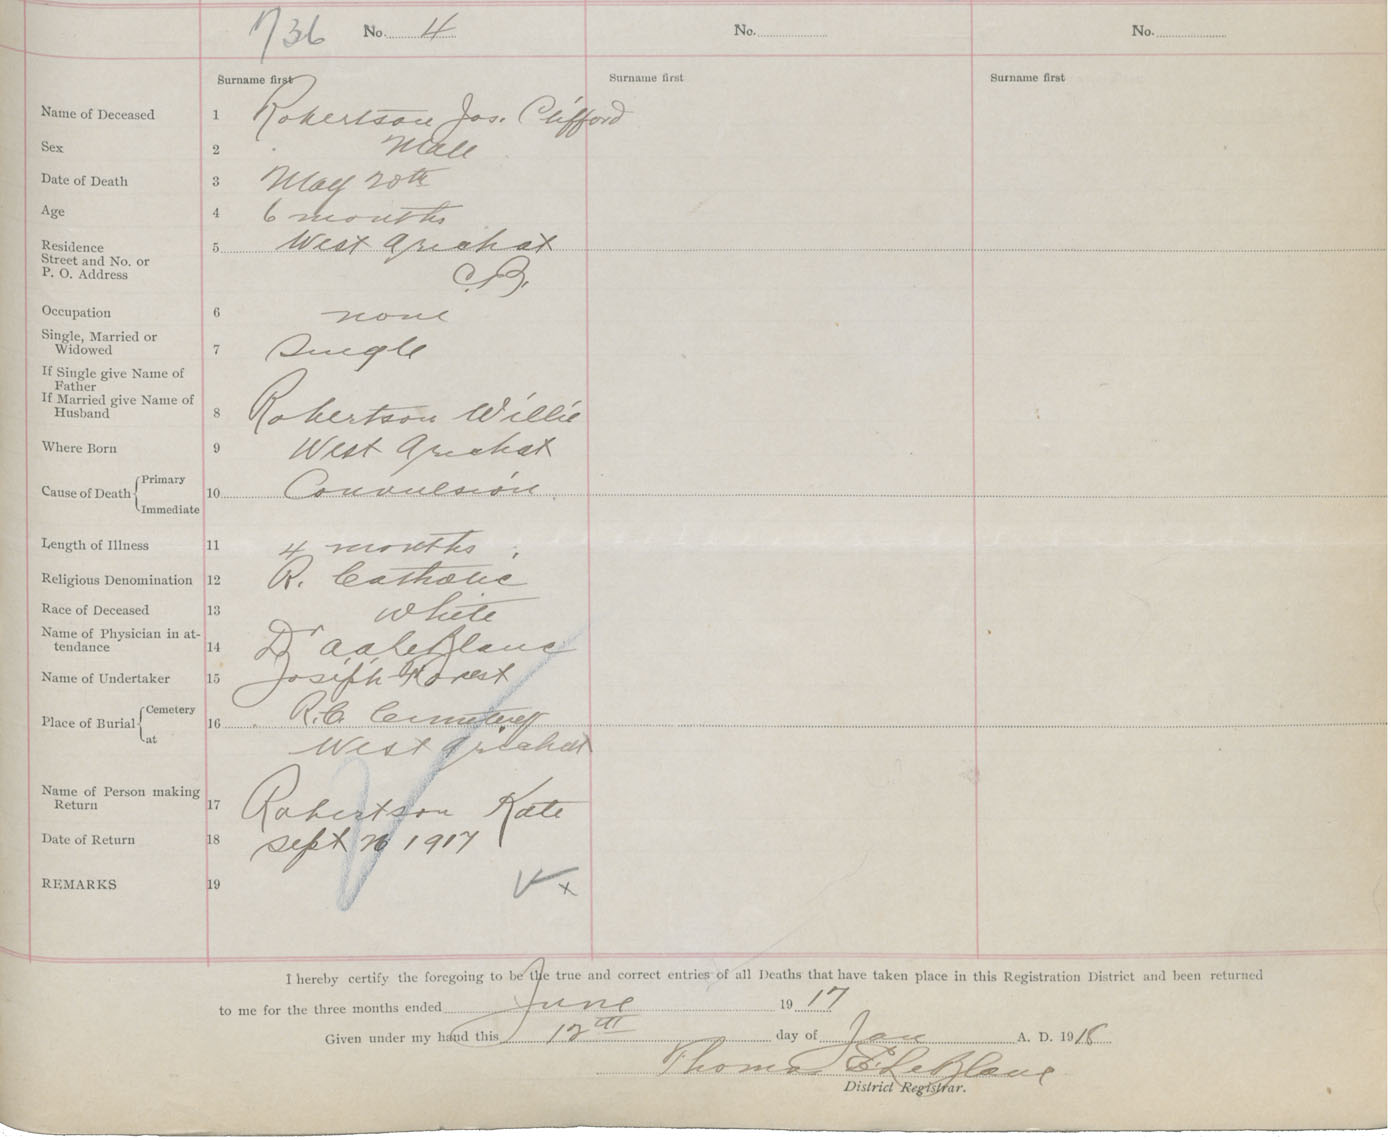 736 No. 4 No. No.
Surname first Surname first Surname first
Name of Deceased 1 Robertson Jos. Clifford
Sex 2 Male
Date of Death 3 May 20th
Age 4 6 months
Residence 5 West Arichat
Street and No. or
P. O. Address C.B.
Occupation 6 none
Single, Married or
Widowed 7 Single
If Single give Name of
Father
If Married give Name of
Husband 8 Robertson Willie
Where Born 9 West Arichat
Cause of Death Primary
10 Convulsion
Immediate
Length of Illness 11 4 months
Religious Denomination 12 R. Catholic
Race of Deceased 13 White
Name of Physician in at-
tendance 14 Dr A A LeBlanc
Name of Undertaker 15 Joseph Forest
Place of Burial Cemetery 16 R.C. Cemetery
at West Arichat
Name of Person making
Return 17 Robertson Kate
Date of Return 18 Sept 1917
REMARKS 19
I hereby certify the foregoing to be the true and correct entries of all Deaths that have taken place in this Registration District and been returned
to me for the three months ended June 1917
Given under my hand this 12th day of Jan A. D. 1918
Thomas E LeBlanc
District Registrar.